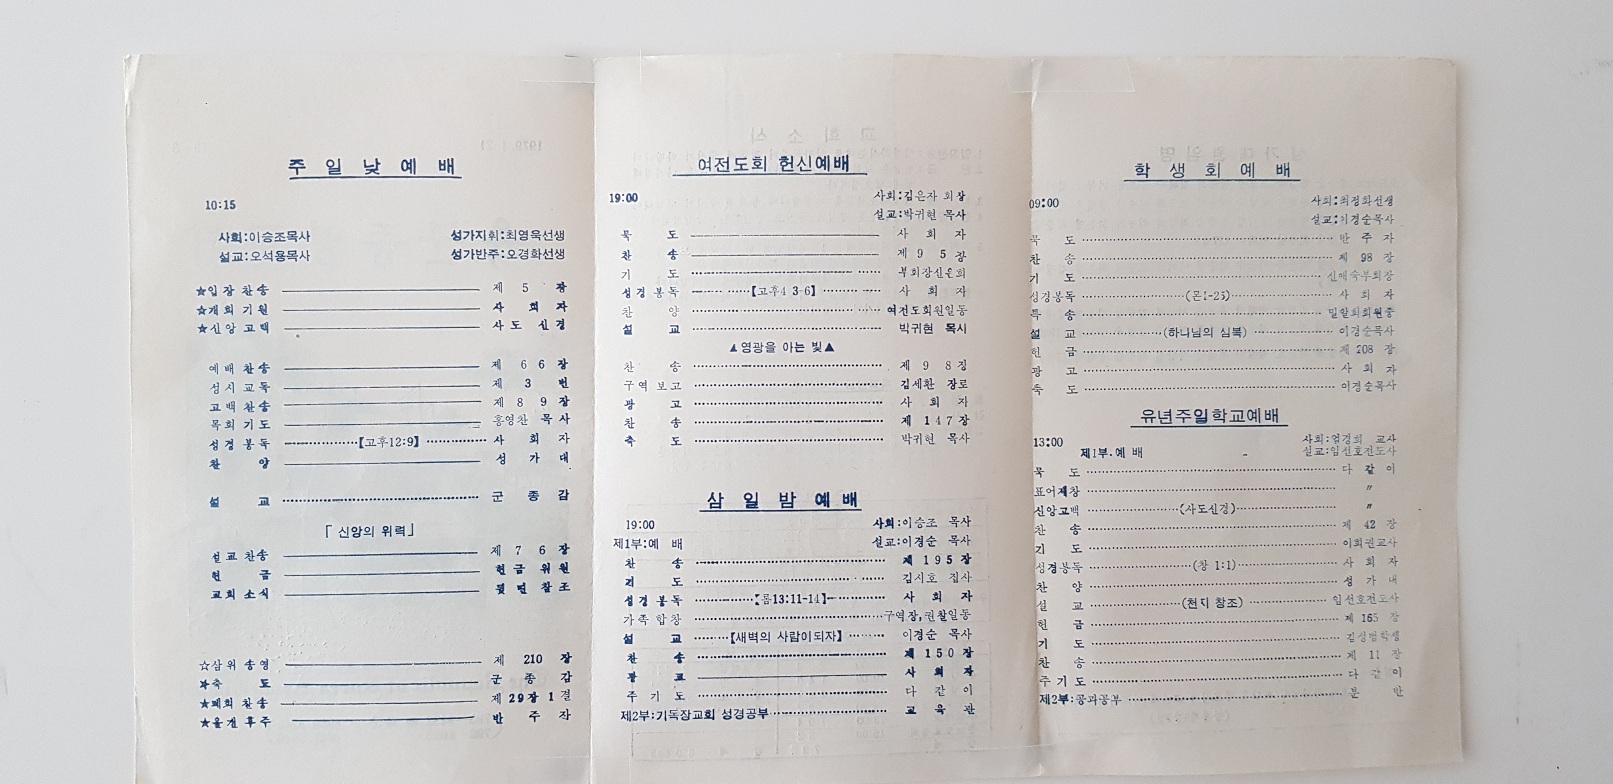 주 일 낮 예 배
10:15
사회:이승조목사 성가지휘:최영욱선생
설교:오석용목사 성가반주:오경화선생
★입 장 찬 송 제 5 장
★개 회 기 원 사 회 자
★신 앙 고 백 사 도 신 경
예 배 찬 송 제 6 6 장
성 시 교 독 제 3 번
고 백 찬 송 제 8 9 장
목 회 기 도 홍영찬 목 사
성 경 봉 독 【고후12:9】 사 회 자
찬 양 성 가 대
설 교 군 종 감
「신앙의 위력」
설 교 찬 송 제 7 6 장
헌 금 헌 금 위 원
교 회 소 식 뒷 면 참 조
☆삼 위 송 영 제 210 장
축 도 군 종 감
★폐 회 찬 송 제 29장 1 절
★올 겐 후 주 반 주 자
여전도회 헌신예배
19:00 사회:김은자 회장
설교:박귀현 목사
묵 도 사 회 자
찬 송 제 9 5 장
기 도 부회장신은희
성 경 봉 독 【고후4 3-6】 사 회 자
찬 양 여전도회원일동
설 교 박귀현 목사
▲영광을 아는 빛▲
찬 송 제 9 8 장
구 역 보 고 김세환 장로
광 고 사 회 자
찬 송 제 1 4 7 장
축 도 박귀현 목사
삼 일 밤 예 배
19:00 사회:이승조 목사
제1부:예 배 설교:이경순 목사
찬 송 제 1 9 5 장
기 도 김시호 집사
성 경 봉 독 【롬13:11-14】 사 회 자
가 족 합 창 구역장,권찰일동
설 교 【새벽의 사람이되자】 이경순 목사
찬 송 제 1 5 0 장
광 고 사 회 자
주 기 도 다 같 이
제2부:기독장교회 성경공부 교 육 관
학 생 회 예 배
09:00 사회:최정화선생
설교:이경순목사
묵 도 반 주 자
찬 송 제 98 장
기 도 신애숙부회장
성경봉독 (몬1-25) 사 회 자
특 송 밀알회회원중
설 교 (하나님의 심복) 이경순목사
헌 금 제 208 장
광 고 사 회 자
축 도 이경순목사
유년주일학교예배
13:00 사회:엄경희 교사
제1부.예 배 설교:임선호전도사
묵 도 다 같 이
표어제창 〃
신앙고백 (사도신경) 〃
찬 송 제 42 장
기 도 이희권교사
성경봉독 (창 1:1) 사 회 자
찬 양 성 가 대
설 교 (천지 창조) 임선호전도사
헌 금 제 165 장
기 도 김성범학생
찬 송 제 11 장
주 기 도 다 같 이
제2부:공과공부 분 반